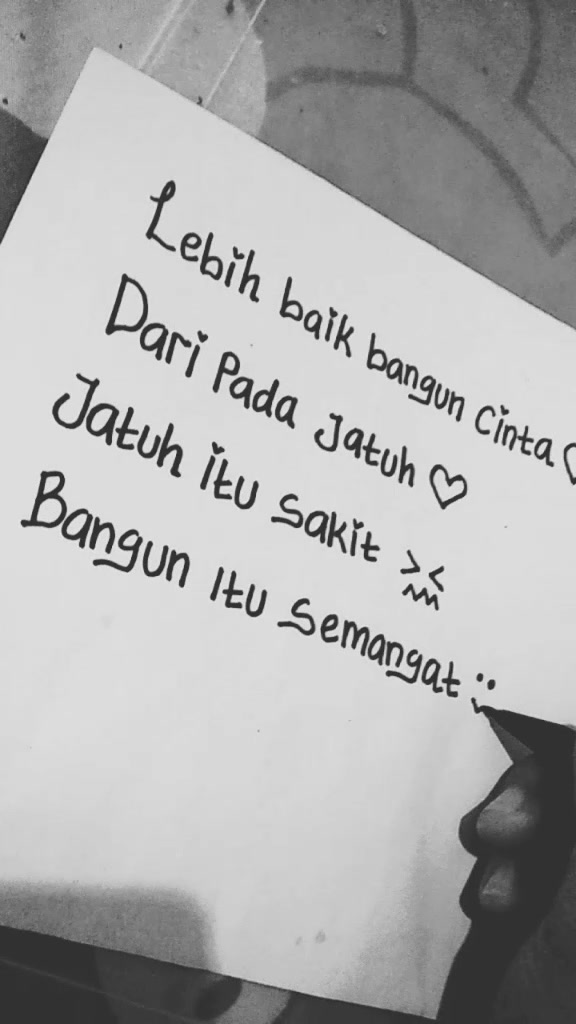 Lebih baik bangun Cinta ♡
Dari Pada Jatuh ♡
Jatuh itu sakit
Bangun Itu Semangat :